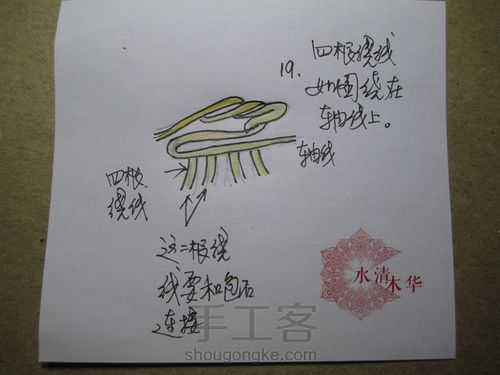 19. 四根绕线
如图绕在
轴线上。
轴线
四根
绕线
这二根绕
线要和包石
连接
水清木华
手工客
shougongke.com